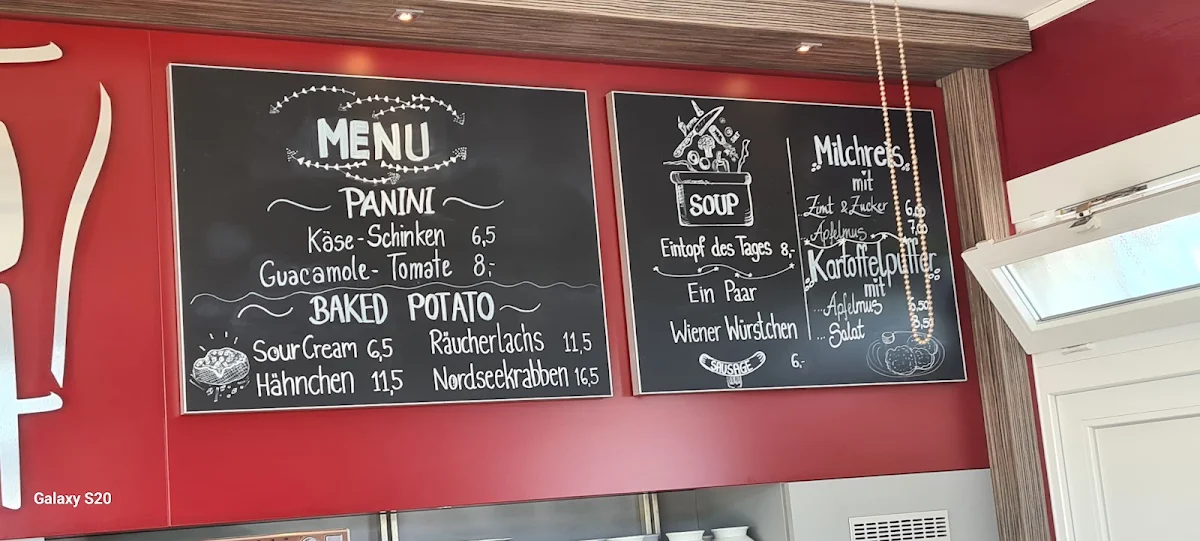 MENU
PANINI
Käse-Schinken 6,5
Guacamole-Tomate 8,-
BAKED POTATO
Sour Cream 6,5
Hähnchen 11,5
Räucherlachs 11,5
Nordseekrabben 16,5
SOUP
Eintopf des Tages 8,-
Ein Paar
Wiener Würstchen
SAUSAGE 6,-
Milchreis
mit
Zimt & Zucker
...Apfelmus
Kartoffelpuffer
mit
...Apfelmus
...Salat
Galaxy S20